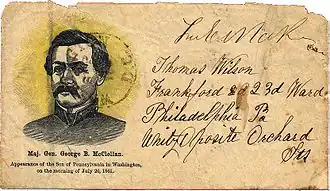 Thomas Wilson
Frankford 23d Ward
Philadelphia Pa
Unity Oposite Orchard
Maj. Gen. George B. McClellan.
Appearance of the Son of Pennsylvania in Washington,
on the morning of July 26, 1861.